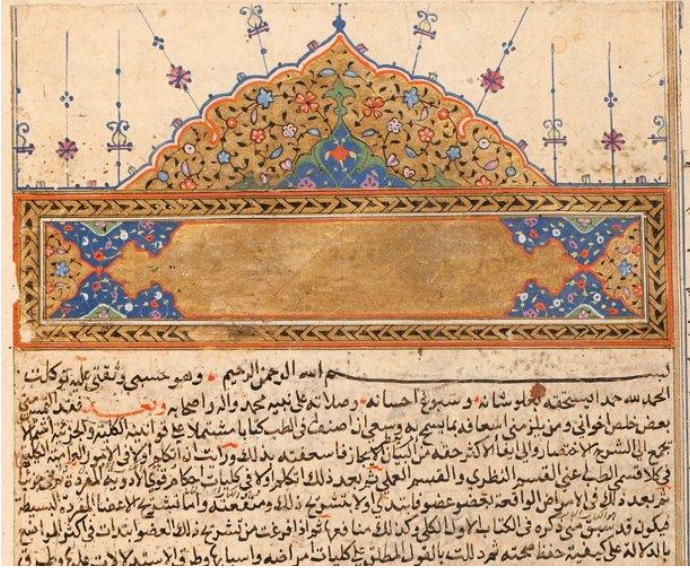 بسم الله الرحمن الرحيم وهو حسبي وثقتي عليه توكلت
الحمد لله حمدا يستحقه بعلو شانه وسبوغ احسانه وصلاته على نبيه محمد واله واصحابه وبعد فقد التمس مني
بعض خلص اخواني ومن يلزمني اسعافه بما يسمح به وسعي ان اصنف في الطب كتابا مشتملا على قوانينه الكلية والجزئية اشتمالا
يجمع الى الشرح الاختصار والى ايفا الاكثر حقه من البيان الايجاز فاسعفته بذلك ورايت ان اتكلم اولا في الامور العامة الكلية
في كلا قسمي الطب اعني القسم النظري والقسم العملي ثم بعد ذلك اتكلم اولا في كليات احكام قوي الادوية المفردة ثم في
ثم بعد ذلك في الامراض الواقعة بعضو عضو فابتدي اولا بتشريح ذلك ومنفعته واما تشريح الاعضا المفردة البسيطة
فيكون قد سبق مني ذكره في الكتاب الاول الكلي وكذلك منافعها ثم اذا فرغت من تشريح ذلك العضو ابتدات في اكثر المواضع
بالدلالة على كيفية حفظ صحته ثم دللت بالقول المطلق على كليات امراضه واسبابها وطرق الاستدلالات عليها وطرق